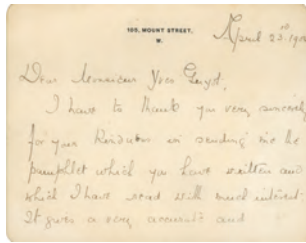 105, MOUNT STREET,
W.
April 23rd 190
Dear Monsieur Yves Guyot,
I have to thank you very sincerely
for your kindness in sending me the
pamphlet which you have written and
which I have read with much interest.
It gives a very accurate and